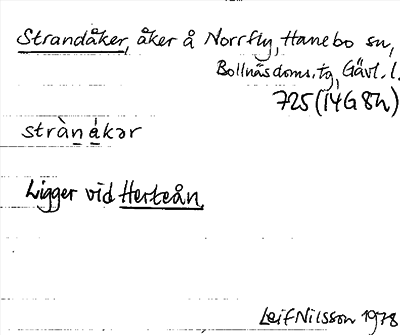 Strandåker, åker å Norrfly, Hanebo sn,
Bollnäs doms. tg, Gävl. l.
725 (14G 8h)
stràn ákər
Ligger vid Herteån.
Leif Nilsson 1978